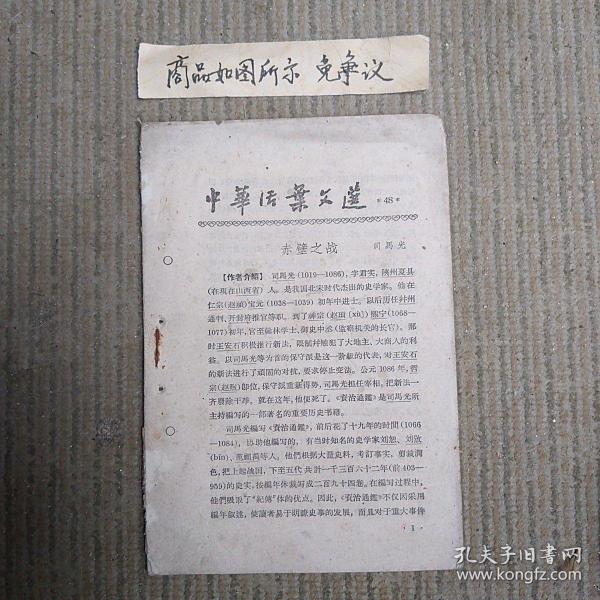 商品如图所示 免争议
中華活葉文選 *48*
赤壁之战 司馬光
【作者介紹】 司馬光(1019—1086),字君实,陝州夏县
(在現在山西省)人。是我国北宋时代杰出的史学家。他在
仁宗(赵禎)宝元(1038—1039)初年中进士。以后历任并州
通判、开封府推官等职。到了神宗(赵頊[xù])熙宁(1068—
1077)初年,官至翰林学士、御史中丞(监察机关的长官)。那
时王安石积极推行新法,限制并触犯了大地主、大商人的利
益。以司馬光等为首的保守派是这一阶級的代表,对王安石
的新法进行了頑固的对抗,要求停止变法。公元1086年,哲
宗(赵煦)卽位,保守派重新得势,司馬光担任宰相,把新法一
齐廢除干净。就在这年,他便死了。《資治通鑑》是司馬光所
主持編写的一部著名的重要历史书籍。
司馬光編写《資治通鑑》,前后花了十九年的时間(1066
—1084),协助他編写的,有当时知名的史学家刘恕、刘攽
(bīn)、范祖禹等人,他們根据大量史料,考訂事实,剪裁潤
色,把上起战国,下至五代共計一千三百六十二年(前403—
959)的史实,按編年体裁写成二百九十四卷。在編写过程中,
他們吸取了“紀傳”体的优点。因此,《資治通鑑》不仅因采用
編年叙述,使讀者易于明瞭史事的发展,而且对于重大事件
1
孔夫子旧书网
www.kongfz.com